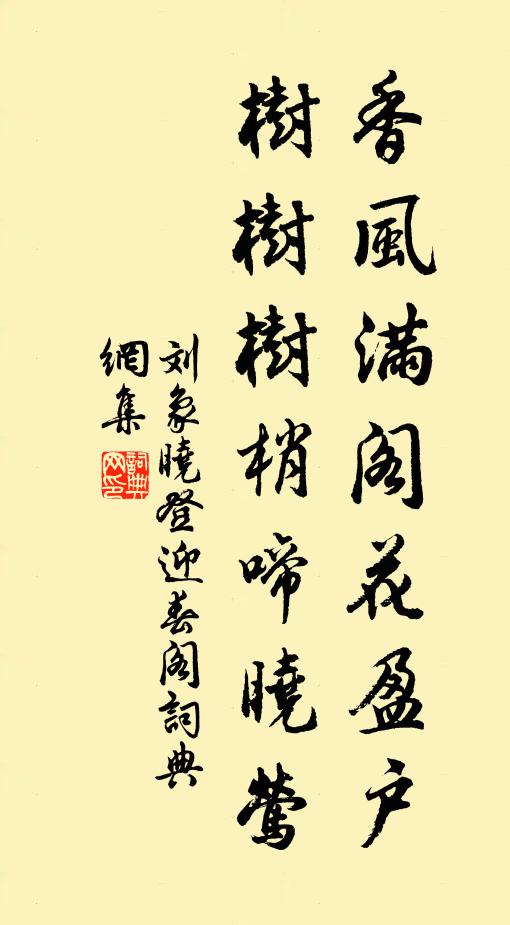 香風滿阁花盈户
樹樹樹梢啼曉鶯
刘象曉登迎春阁詞典
網集
詞典網印